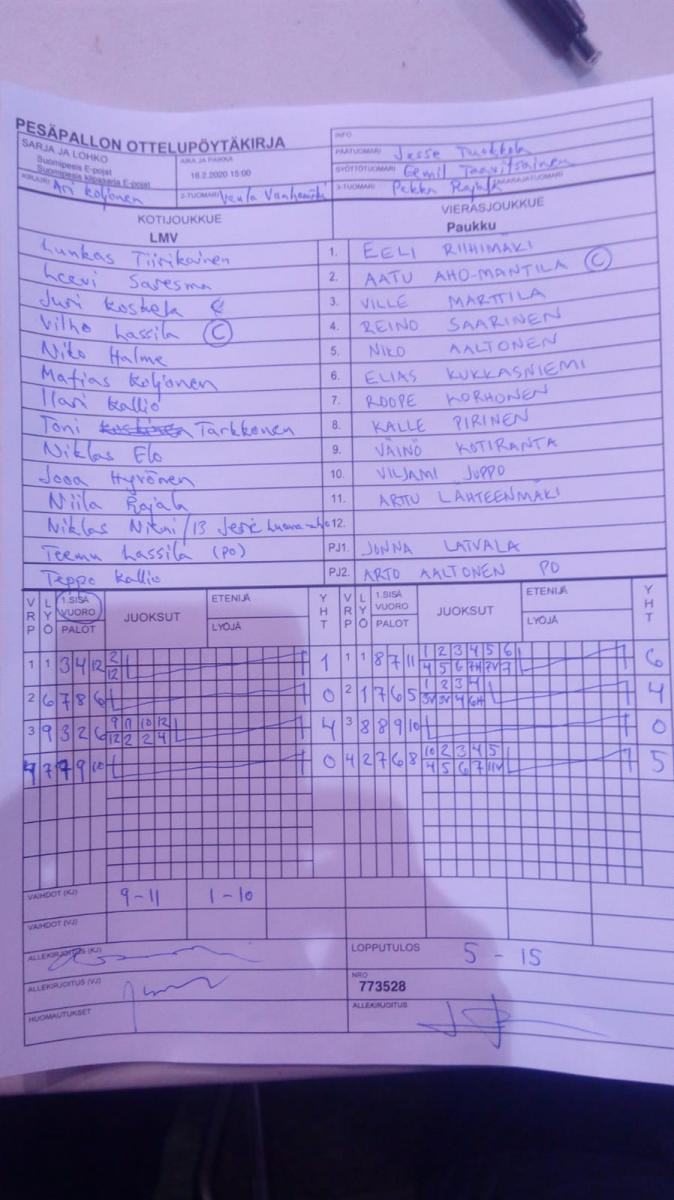 PESÄPALLON OTTELUPÖYTÄKIRJA
INFO
SARJA JA LOHKO
Suomipesis E-pojat
Suomipesis kilpasarja E-pojat
AIKA JA PAIKKA
16.2.2020 15:00
PÄÄTUOMARI Jesse
SYÖTTÖTUOMARI Eemil Taavitsainen
KIRJURI Ari Koljonen
2-TUOMARI Veula
3-TUOMARI Pekka Rajala
KOTIJOUKKUE
VIERASJOUKKUE
LMV
Paukku
Luukas Tiirikainen 1. EELI RIIHIMÄKI
Leevi Saresma 2. AATU AHO-MANTILA C
Juri Koskela 3. VILLE MARTTILA
Vilho Lassila C 4. REINO SAARINEN
Niko Halme 5. NIKO AALTONEN
Matias Koljonen 6. ELIAS KUKKASNIEMI
Ilari Kallio 7. ROOPE KORHONEN
Toni Tarkkonen 8. KALLE PIRINEN
Niklas Elo 9. VÄINÖ KOTIRANTA
Jooa Hyrönen 10. VILJAMI JUPPO
Niila Rajala 11. ARTTU LÄHTEENMÄKI
Niklas Niemi / 13 12.
Teemu Lassila (PO) PJ1. JONNA LATVALA
Teppo Kallio PJ2. ARTO AALTONEN PO
VRP LYÖ 1.SISÄ VUORO PALOT JUOKSUT ETENIJÄ LYÖJÄ YHT VRP LYÖ 1.SISÄ VUORO PALOT JUOKSUT ETENIJÄ LYÖJÄ YHT
2 1 2 3 4 5 6
1 1 3 4 12 12 1 1 1 8 7 11 4 5 6 7H 2V 7 6
1 2 3 4
2 6 7 8 6 0 2 1 7 6 5 3V 3V 4 6H 4
9 11 10 12
3 9 3 2 6 12 2 2 4 4 3 8 8 9 10 0
10 2 3 4 5
4 7 7 9 10 0 4 2 7 6 8 4 5 6 7 11V 5
VAIHDOT (KJ) 9-11 1-10
VAIHDOT (VJ)
ALLEKIRJOITUS (KJ)
LOPPUTULOS 5 - 15
ALLEKIRJOITUS (VJ)
NRO
773528
HUOMAUTUKSET
ALLEKIRJOITUS